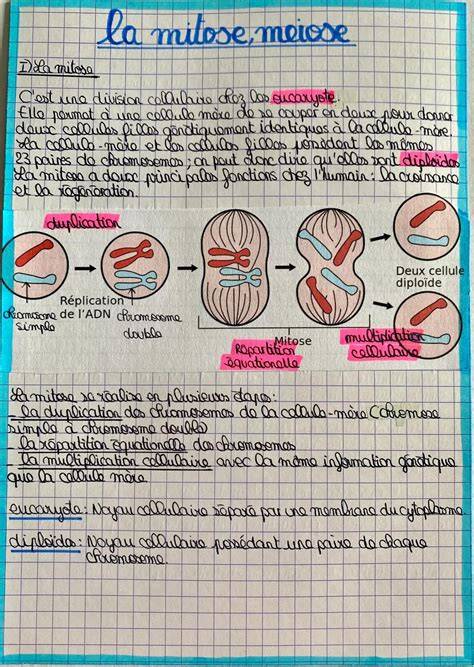 La mitose, meiose
I) La mitose
C'est une division cellulaire chez les eucaryote.
Elle permet à une cellule mère de se couper en deux pour donner
deux cellules filles génétiquement identiques à la cellule-mère.
La cellule-mère et les cellules filles possèdent les mêmes
23 paires de chromosomes; on peut donc dire qu'elles sont diploïdes
La mitose a deux principales fonctions chez l'humain: la croissance
et la régénération.
duplication
Réplication
de l'ADN
chromosome
simple
chromosome
double
Mitose
Répartition
équationelle
multiplication
cellulaire
Deux cellule
diploïde
La mitose se réalise en plusieurs étapes:
- la duplication des chromosomes de la cellule-mère (chromose
simple à chromosome double)
- la répartition équationelle des chromosomes
- la multiplication cellulaire avec la même information génétique
que la cellule mère.
eucaryote: Noyau cellulaire séparé par une membrane du cytoplasme.
diploïdes: Noyau cellulaire possédant une paire de chaque
chromosome.